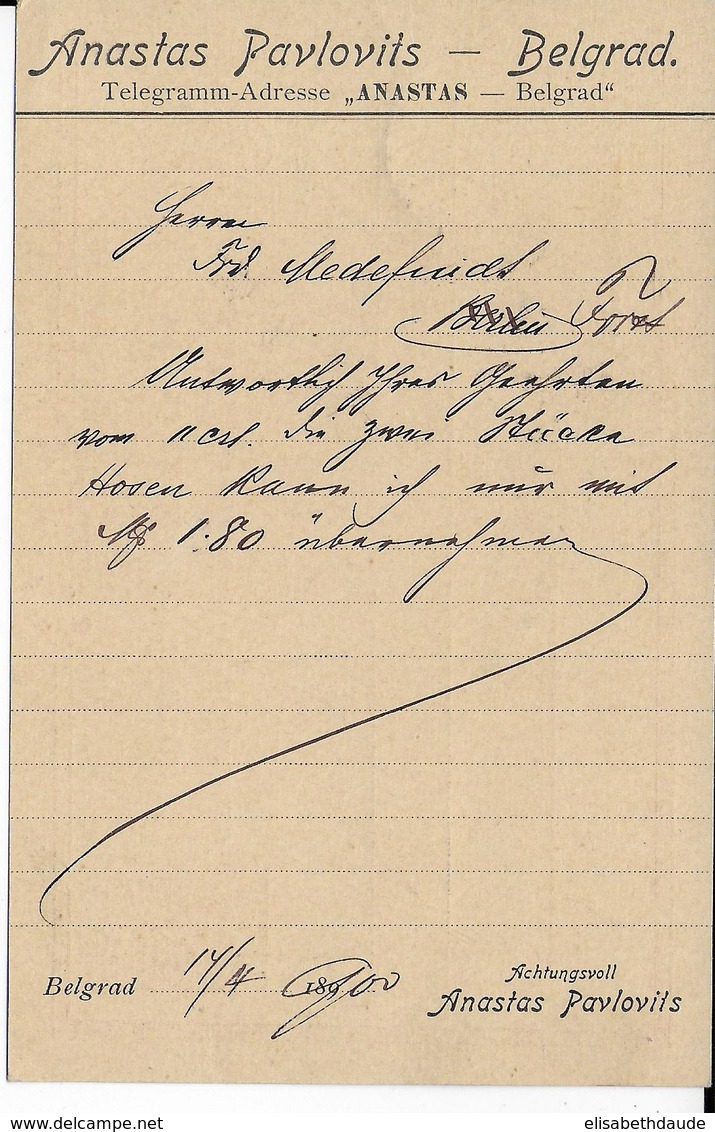 Anastas Pavlovits — Belgrad.
Telegramm-Adresse „ANASTAS — Belgrad“
Herrn
Frd. Medefindt
Berlin Forst
Antwortlich Ihres Geehrten
vom 11 crt. die zwei Stücke
Hosen kann ich nur mit
1.80 übernehmen
Belgrad 14/4 1900
Achtungsvoll
Anastas Pavlovits
www.delcampe.net
elisabethdaude